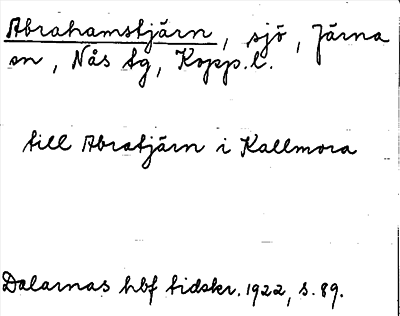 Abrahamstjärn, sjö, Järna
sn, Nås tg, Kopp.l.
till Abratjärn i Kallmora
Dalarnas hbf tidskr. 1922, s. 89.